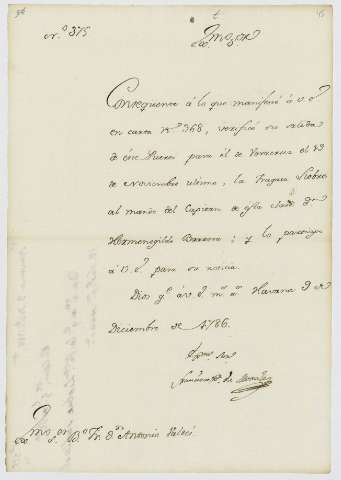 n.º 375
Exmo. Sor.
Consequente à lo que manifesté à V. E.
en carta n.º 368, verificó su salida
de este Puerto para él de Veracruz el 23
de Noviembre ultimo, la Fragata
al mando del Capitan de esta clase Dn
Hermenegildo Barrera; y lo participo
à V. E. para su noticia.
Dios gue. à V. E. ms. as. Havana 9 de
Diciembre de 1786.
Exmo. Sor.
de
Exmo. Sor. B.º Fr. D.n Antonio Valdés.